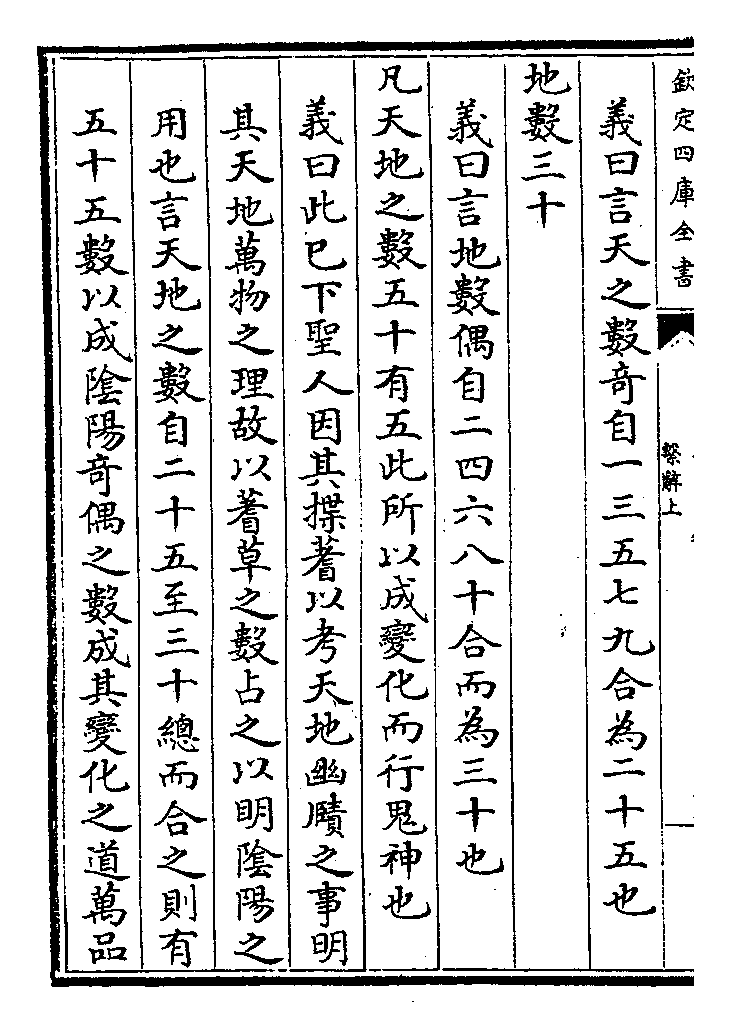 欽定四庫全書
繫辭上
義曰言天之數奇自一三五七九合為二十五也
地數三十
義曰言地數偶自二四六八十合而為三十也
凡天地之數五十有五此所以成變化而行鬼神也
義曰此已下聖人因其揲蓍以考天地幽賾之事明
其天地萬物之理故以蓍草之數占之以明陰陽之
用也言天地之數自二十五至三十總而合之則有
五十五數以成陰陽奇偶之數成其變化之道萬品